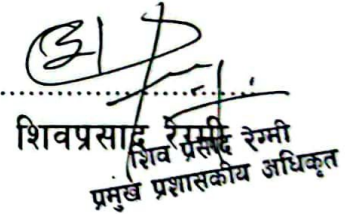 शिवप्रसाद रेग्मी
शिव प्रसाद रेग्मी
प्रमुख प्रशासकीय अधिकृत